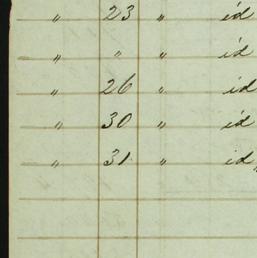 " 23 " id
" " " id
" 26 " id
" 30 " id
" 31 " id